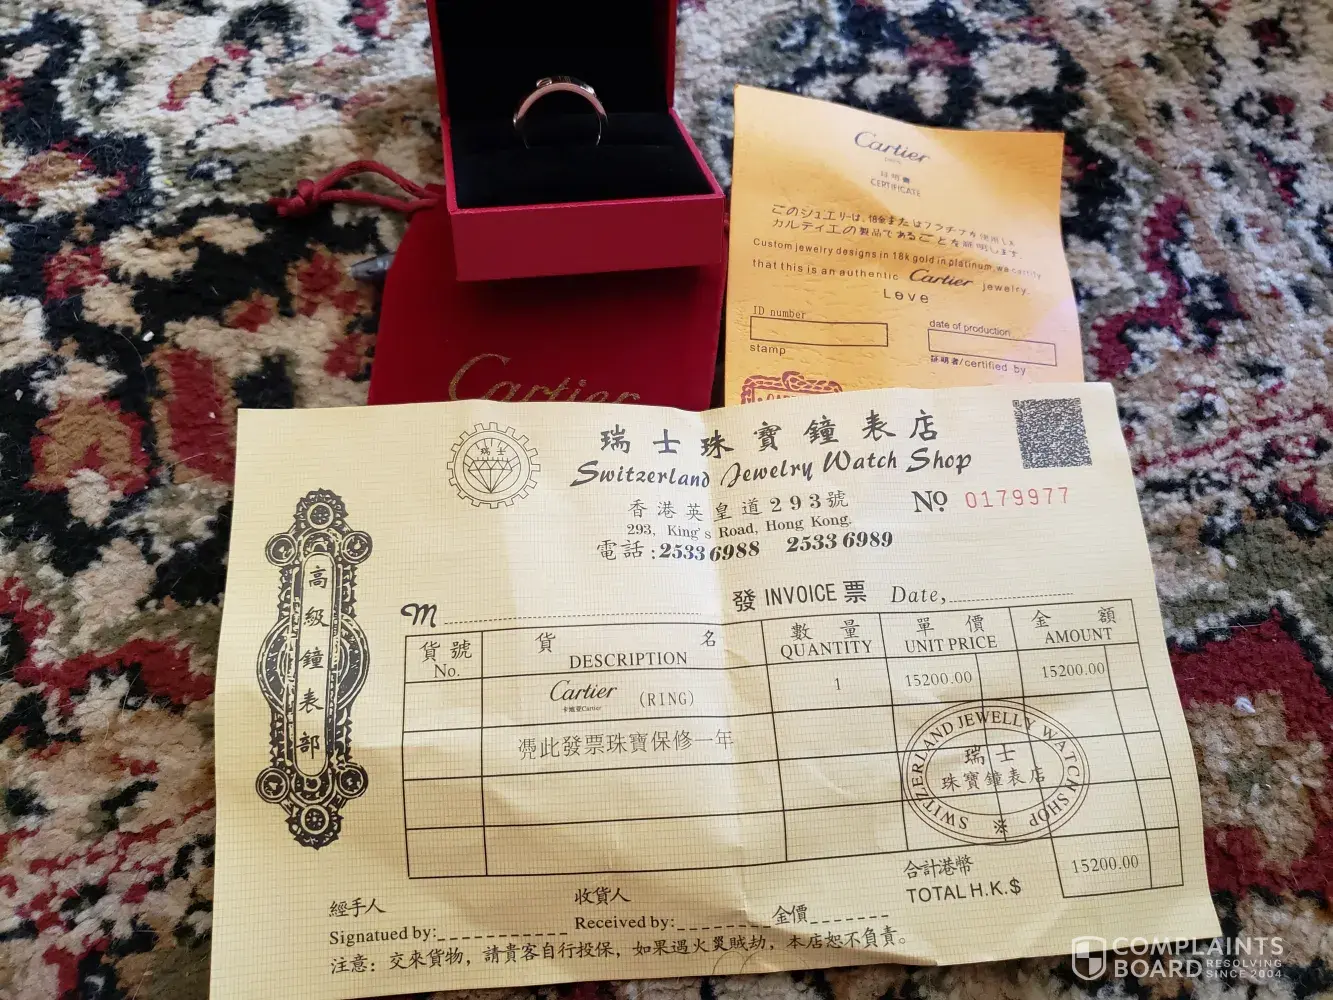 Cartier
証明書
CERTIFICATE
このジュエリーは、18金またはプラチナを使用した
カルティエの製品であることを証明します。
Custom jewelry designs in 18k gold in platinum, we certify
that this is an authentic Cartier jewelry.
Love
ID number
date of production
stamp
証明者/certified by
Cartier
瑞士
瑞士珠寶鐘表店
Switzerland Jewelry Watch Shop
香港英皇道293號
No 0179977
293, King's Road, Hong Kong.
電話:25336988 25336989
高級鐘表部
發 INVOICE 票 Date,
M
貨號 No.
貨名 DESCRIPTION
數量 QUANTITY
單價 UNIT PRICE
金額 AMOUNT
Cartier (RING) 1 15200.00 15200.00
卡地亚Cartier
凴此發票珠寶保修一年
SWITZERLAND JEWELLY WATCN SHOP
瑞士
珠寶鐘表店
合計港幣
TOTAL H.K.$ 15200.00
經手人
收貨人
Signatued by:
Received by:
金價
注意：交來貨物，請貴客自行投保，如果遇火災賊劫，本店恕不負責。
COMPLAINTS
BOARD RESOLVING
SINCE 2004